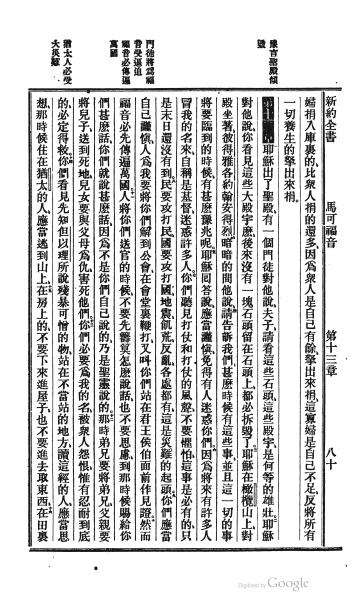 新約全書
馬可福音
第十三章
八十
豫言聖殿傾
毀
門徒將為福
音受逼迫
福音必傳遍
萬國
猶太人必受
大災難
婦捐入庫裏的、比衆人捐的還多、因為衆人是自己有餘、拏出來捐、這寡婦是自己不足、反將所有
一切養生的拏出來捐、
第十三章耶穌出了聖殿、有一個門徒對他說、夫子、請看這些石頭、這些殿宇、是何等的雄壯、耶穌
對他說、你看見這些大殿宇麽、後來沒有一塊石頭留在石頭上、都必拆毀了、耶穌在橄欖山上、對
殿坐著、彼得雅各約翰安得烈、暗暗的問他說、請告訴我們、甚麽時候有這些事、並且這一切的事
將要臨到的時候、有甚麽豫兆呢、耶穌回答說、應當謹愼、免得有人迷惑你們、因為將來有許多人
冒我的名來、自稱是基督、迷惑許多人、你們聽見打仗和打仗的風聲、不要懼怕、這事是必有的、只
是末日還沒有到、民要攻打民、國要攻打國、地震飢荒反亂、各處都有、這是災難的起頭、你們應當
自己謹愼、人為我要將你們解到公會、在會堂裏鞭打、又叫你們站在君王侯伯面前作見證、然而
福音必先傳遍萬國、人將你們送官的時候、不要先籌算怎麽說話、也不要思慮、到那時候賜給你
們甚麽話、你們就說甚麽話、因為不是你們自己說的、乃是聖靈說的、那時弟兄要將弟兄、父親要
將兒子、送到死地、兒女要與父母為仇、害死他們、你們必要為我的名、被衆人怨恨、惟有忍耐到底
的、必定得救、你們看見先知但以理所說殘暴可憎的物、站在不當站的地方、讀這經的人應當思
想、那時候住在猶太的人、應當逃到山上、在房上的、不要下來進屋子、也不要進去取東西、在田裏
Digitized by Google